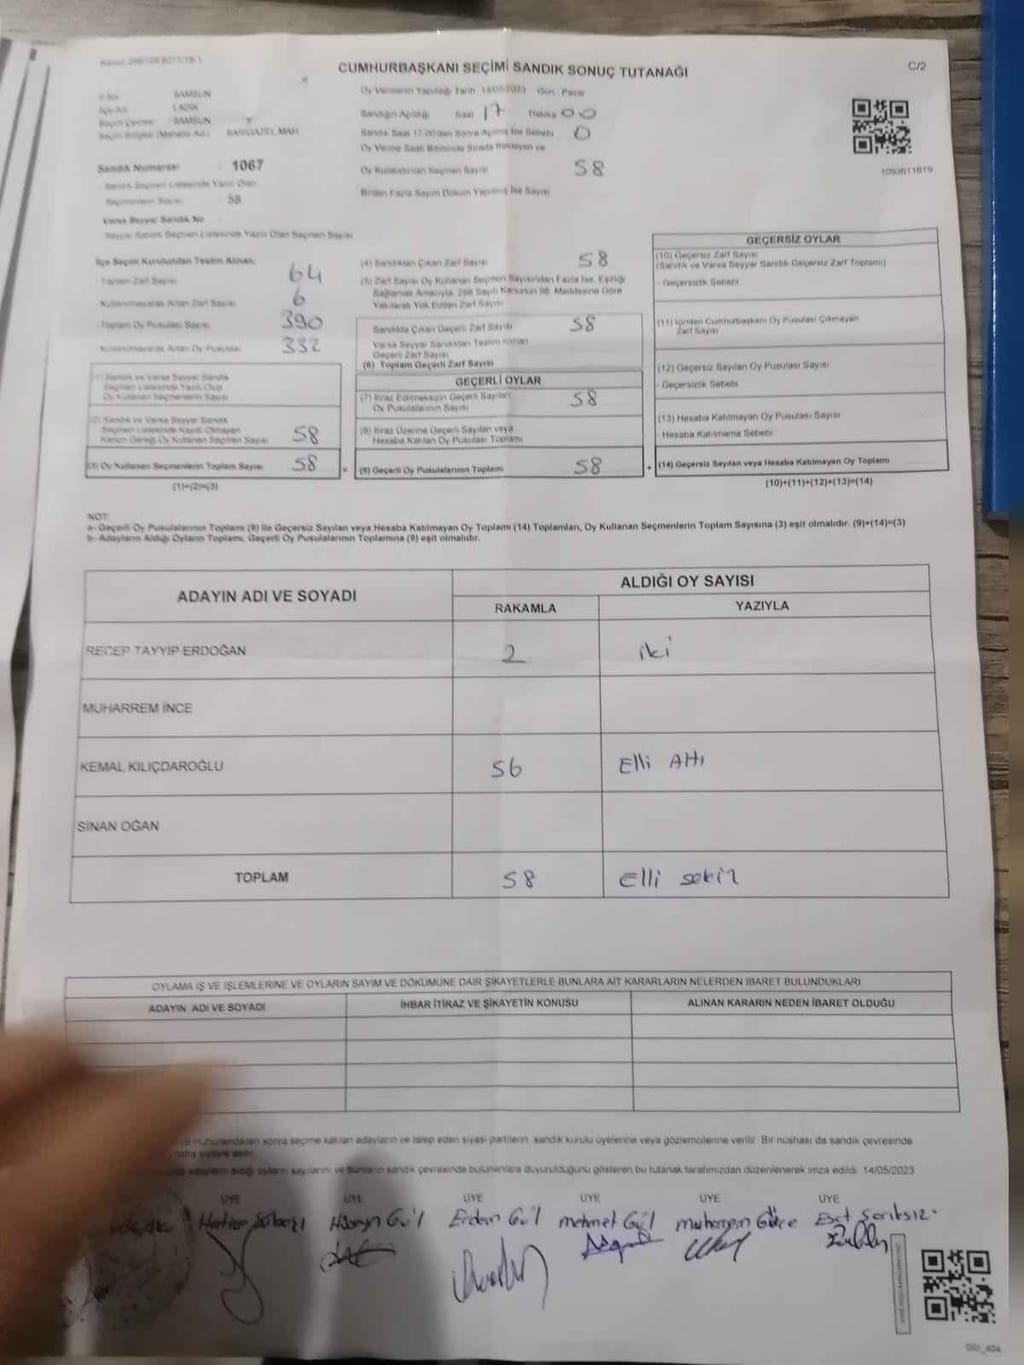 CUMHURBAŞKANI SEÇİMİ SANDIK SONUÇ TUTANAĞI
C/2
Oy Vermenin Yapıldığı Tarih 14/05/2023 Gün Pazar
SAMSUN
LADİK
SAMSUN
Sandığın Açıldığı Saat 17 Dakika 00
Sandık Saat 17:00'den Sonra Açılmış İse Sebebi 0
Oy Verme Saati Bitiminde Sırada Bekleyen ve
Oy Kullandırılan Seçmen Sayısı 58
Birden Fazla Sayım Döküm Yapılmış İse Sayısı
1093611819
Sandık Numarası 1067
Sandık Seçmen Listesinde Yazılı Olan
Seçmenlerin Sayısı 58
Varsa Seyyar Sandık No
Seyyar Sandık Seçmen Listesinde Yazılı Olan Seçmen Sayısı
İlçe Seçim Kurulundan Teslim Alınan;
Toplam Zarf Sayısı 64
Kullanılmayarak Artan Zarf Sayısı 6
Toplam Oy Pusulası Sayısı 390
Kullanılmayarak Artan Oy Pusulası 332
(1) Sandık ve Varsa Seyyar Sandık
Seçmen Listesinde Yazılı Olup
Oy Kullanan Seçmenlerin Sayısı
(2) Sandık ve Varsa Seyyar Sandık
Seçmen Listesinde Kayıtlı Olmayan
Kanun Gereği Oy Kullanan Seçmen Sayısı 58
(3) Oy Kullanan Seçmenlerin Toplam Sayısı 58
(1)+(2)=(3)
(4) Sandıktan Çıkan Zarf Sayısı 58
(5) Zarf Sayısı Oy Kullanan Seçmen Sayısından Fazla İse, Eşitliği
Sağlamak Amacıyla, 298 Sayılı Kanunun 98. Maddesine Göre
Yakılarak Yok Edilen Zarf Sayısı
Sandıkta Çıkan Geçerli Zarf Sayısı 58
Varsa Seyyar Sandıktan Teslim Alınan
Geçerli Zarf Sayısı
(6) Toplam Geçerli Zarf Sayısı
GEÇERLİ OYLAR
(7) İtiraz Edilmeksizin Geçerli Sayılan
Oy Pusulalarının Sayısı 58
(8) İtiraz Üzerine Geçerli Sayılan veya
Hesaba Katılan Oy Pusulası Toplamı
(9) Geçerli Oy Pusulalarının Toplamı 58
GEÇERSİZ OYLAR
(10) Geçersiz Zarf Sayısı
(Sandık ve Varsa Seyyar Sandık Geçersiz Zarf Toplamı)
- Geçersizlik Sebebi
(11) İçinden Cumhurbaşkanı Oy Pusulası Çıkmayan
Zarf Sayısı
(12) Geçersiz Sayılan Oy Pusulası Sayısı
- Geçersizlik Sebebi
(13) Hesaba Katılmayan Oy Pusulası Sayısı
- Hesaba Katılmama Sebebi
(14) Geçersiz Sayılan veya Hesaba Katılmayan Oy Toplamı
(10)+(11)+(12)+(13)=(14)
NOT:
a- Geçerli Oy Pusulalarının Toplamı (9) ile Geçersiz Sayılan veya Hesaba Katılmayan Oy Toplamı (14) Toplamları, Oy Kullanan Seçmenlerin Toplam Sayısına (3) eşit olmalıdır. (9)+(14)=(3)
b- Adayların Aldığı Oyların Toplamı, Geçerli Oy Pusulalarının Toplamına (9) eşit olmalıdır.
ADAYIN ADI VE SOYADI
ALDIĞI OY SAYISI
RAKAMLA YAZIYLA
RECEP TAYYİP ERDOĞAN 2 iki
MUHARREM İNCE
KEMAL KILIÇDAROĞLU 56 Elli Altı
SİNAN OĞAN
TOPLAM 58 Elli sekiz
OYLAMA İŞ VE İŞLEMLERİNE VE OYLARIN SAYIM VE DÖKÜMÜNE DAİR ŞİKAYETLERLE BUNLARA AİT KARARLARIN NELERDEN İBARET BULUNDUKLARI
ADAYIN ADI VE SOYADI İHBAR İTİRAZ VE ŞİKAYETİN KONUSU ALINAN KARARIN NEDEN İBARET OLDUĞU
sonra seçime katılan adayların ve talep eden siyasi partilerin sandık kurulu üyelerine veya gözlemcilerine verilir. Bir nüshası da sandık çevresinde
adayların aldığı oyların sayılarını ve bunların sandık çevresinde bulunanlara duyurulduğunu gösteren bu tutanak tarafımızdan düzenlenerek imza edildi. 14/05/2023
ÜYE ÜYE ÜYE ÜYE ÜYE ÜYE
Hüseyin Gül Erdem Gül mehmet Gül